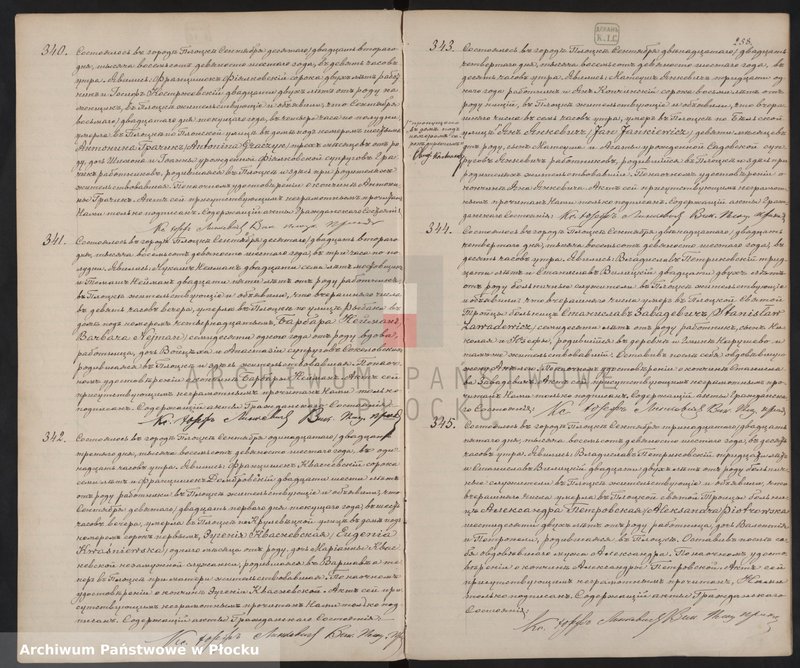 340. Состоялось въ городѣ Плоцкѣ Сентября десятаго/двадцать втораго
дня, тысяча восемьсотъ девяносто шестаго года, въ девять часовъ
утра. Явились: Францишекъ Фіялковскій сорока двухъ лѣтъ работ
никъ и Іосифъ двадцати двухъ лѣтъ отъ роду ка
менщикъ, въ Плоцкѣ жительствующіе и объявили, что Сентября
восьмаго/двадцатаго дня текущаго года, въ четыре часа по полудни,
умерла въ Плоцкѣ по Плонской улицѣ въ домѣ подъ номеромъ шестымъ
Антонина Грачикъ /Antonina Graczyk/ трехъ мѣсяцевъ отъ ро
ду, дочь и урожденной Фіялковской супруговъ Гра
чикъ работниковъ, родившаяся въ Плоцкѣ и здѣсь при родителяхъ
жительствовавшая. По наочномъ удостовѣреніи о кончинѣ Антони
ны Грачикъ, Актъ сей присутствующимъ неграмотнымъ прочитанъ,
Нами только подписанъ. Содержащій акты Гражданскаго Состоянія:
341. Состоялось въ городѣ Плоцкѣ Сентября десятаго/двадцать втораго
дня, тысяча восемьсотъ девяносто шестаго года, въ три часа по по
лудни. Явились: Лукашъ Нейманъ двадцати семи лѣтъ
и Томашъ Нейманъ двадцати пяти лѣтъ отъ роду работники,
въ Плоцкѣ жительствующіе и объявили, что вчерашняго числа
въ девять часовъ вечера, умерла въ Плоцкѣ по улицѣ Рыбаки въ
домѣ подъ номеромъ четырнадцатымъ, Барбара Нейманъ /
Barbara Nejman/ семидесяти одного года отъ роду вдова,
работница, дочь Войцѣха и Анастазіи супруговъ Соколовскихъ,
родившаяся въ Плоцкѣ и здѣсь жительствовавшая. По наоч
номъ удостовѣреніи о кончинѣ Барбары Нейманъ, Актъ сей
присутствующимъ неграмотнымъ прочитанъ, Нами только
подписанъ. Содержащій акты Гражданскаго Состоянія:
342. Состоялось въ городѣ Плоцкѣ Сентября одиннадцатаго/двадцать
третьяго дня, тысяча восемьсотъ девяносто шестаго года, въ оди
надцать часовъ утра. Явились: Францишекъ Квасневскій сорока
семи лѣтъ и Францишекъ Домбровскій двадцати шести лѣтъ
отъ роду работники въ Плоцкѣ жительствующіе и объявили, что
Сентября девятаго/двадцать перваго дня текущаго года, въ шесть
часовъ вечера, умерла въ Плоцкѣ по улицѣ въ домѣ подъ
номеромъ сорокъ первымъ, Эугенія Квасневская /Eugenia
Kwaśniewska/ одного мѣсяца отъ роду, дочь Маріанны Квас
невской незамужной служанки, родившаяся въ Варшавѣ а те
перь въ Плоцкѣ при матери жительствовавшая. По наочномъ
удостовѣреніи о кончинѣ Эугеніи Квасневской, Актъ сей при
сутствующимъ неграмотнымъ прочитанъ Нами только под
писанъ. Содержащій акты Гражданскаго Состоянія:
238.
343. Состоялось въ городѣ Плоцкѣ Сентября двѣнадцатаго/двадцать
четвертаго дня, тысяча восемьсотъ девяносто шестаго года, въ
десять часовъ утра. Явились: Матеушъ Янкевичъ тридцати од
ного года работникъ и Янъ восьмидесяти лѣтъ отъ
роду нищій, въ Плоцкѣ жительствующіе и объявили, что вчераш
няго числа въ семь часовъ утра, умеръ въ Плоцкѣ по Бѣльской
улицѣ Янъ Янкевичъ /Jan Jankiewicz/ девяти мѣсяцевъ
отъ роду, сынъ Матеуша и урожденной Садовской суп
руговъ Янкевичъ работниковъ, родившійся въ Плоцкѣ и здѣсь при
родителяхъ жительствовавшій. По наочномъ удостовѣреніи о
кончинѣ Яна Янкевича, Актъ сей присутствующимъ неграмот
нымъ прочитанъ, Нами только подписанъ. Содержащій акты Граж
данскаго Состоянія:
344. Состоялось въ городѣ Плоцкѣ Сентября двѣнадцатаго/двадцать
четвертаго дня, тысяча восемьсотъ девяносто шестаго года, въ
десять часовъ утра. Явились: Владиславъ Петриковскій трид
цати лѣтъ и Станиславъ Вилицкій двадцати двухъ лѣтъ
отъ роду больничные служители въ Плоцкѣ жительствующіе
и объявили, что вчерашняго числа умеръ въ Плоцкой Святой
Троицы больницѣ Станиславъ Завадевичъ /Stanisław
Zawadewicz/ семидесяти лѣтъ отъ роду, работникъ, сынъ
и Іозефы, родившійся въ деревнѣ и гминѣ и
тамъ же жительствовавшій. Оставивъ послѣ себя овдовѣвшую
жену По наочномъ удостовѣреніи о кончинѣ Станисла
ва Завадевича, Актъ сей присутствующимъ неграмотнымъ про
читанъ, Нами только подписанъ. Содержащій акты Гражданска
го Состоянія:
345. Состоялось въ городѣ Плоцкѣ Сентября тринадцатаго/двадцать
пятаго дня, тысяча восемьсотъ девяносто шестаго года, въ десять
часовъ утра. Явились: Владиславъ Петриковскій тридцати лѣтъ
и Станиславъ Вилицкій двадцати двухъ лѣтъ отъ роду больнич
ные служители въ Плоцкѣ жительствующіе и объявили, что
вчерашняго числа умерла въ Плоцкой святой Троицы больни
цѣ Александра Петровская /Aleksandra Piotrowska/
шестидесяти двухъ лѣтъ отъ роду, работница, дочь Валентія
и Петронели, родившаяся въ Плоцкѣ. Оставивъ послѣ се
бя овдовѣвшаго мужа Александра. По наочномъ удосто
вѣреніи о кончинѣ Александры Петровской, Актъ сей
присутствующимъ неграмотнымъ прочитанъ, Нами
только подписанъ. Содержащій акты Гражданскаго
Состоянія:
ARCHIWUM PAŃSTWOWE
W PŁOCKU
Archiwum Państwowe w Płocku